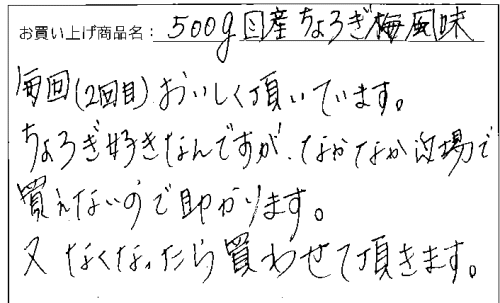 お買い上げ商品名: 500g国産ちょろぎ梅風味
毎回(2回目)おいしく頂いています。
ちょろぎ好きなんですが、なかなか市場で
買えないので助かります。
又なくなったら買わせて頂きます。